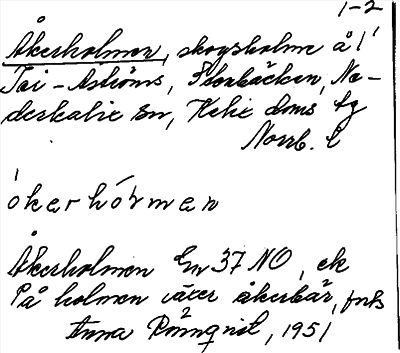 1-2
Åkerholmen, skogsholme å l
Tai-Aströms, Storbäcken, Ne-
derkalix sn, Kalix doms tg
Norrb. l
ókerhó'rmen
Åkerholmen Em 37 NO, ek
På holmen växer åkerbär,
Anna Rönnqvist, 1951